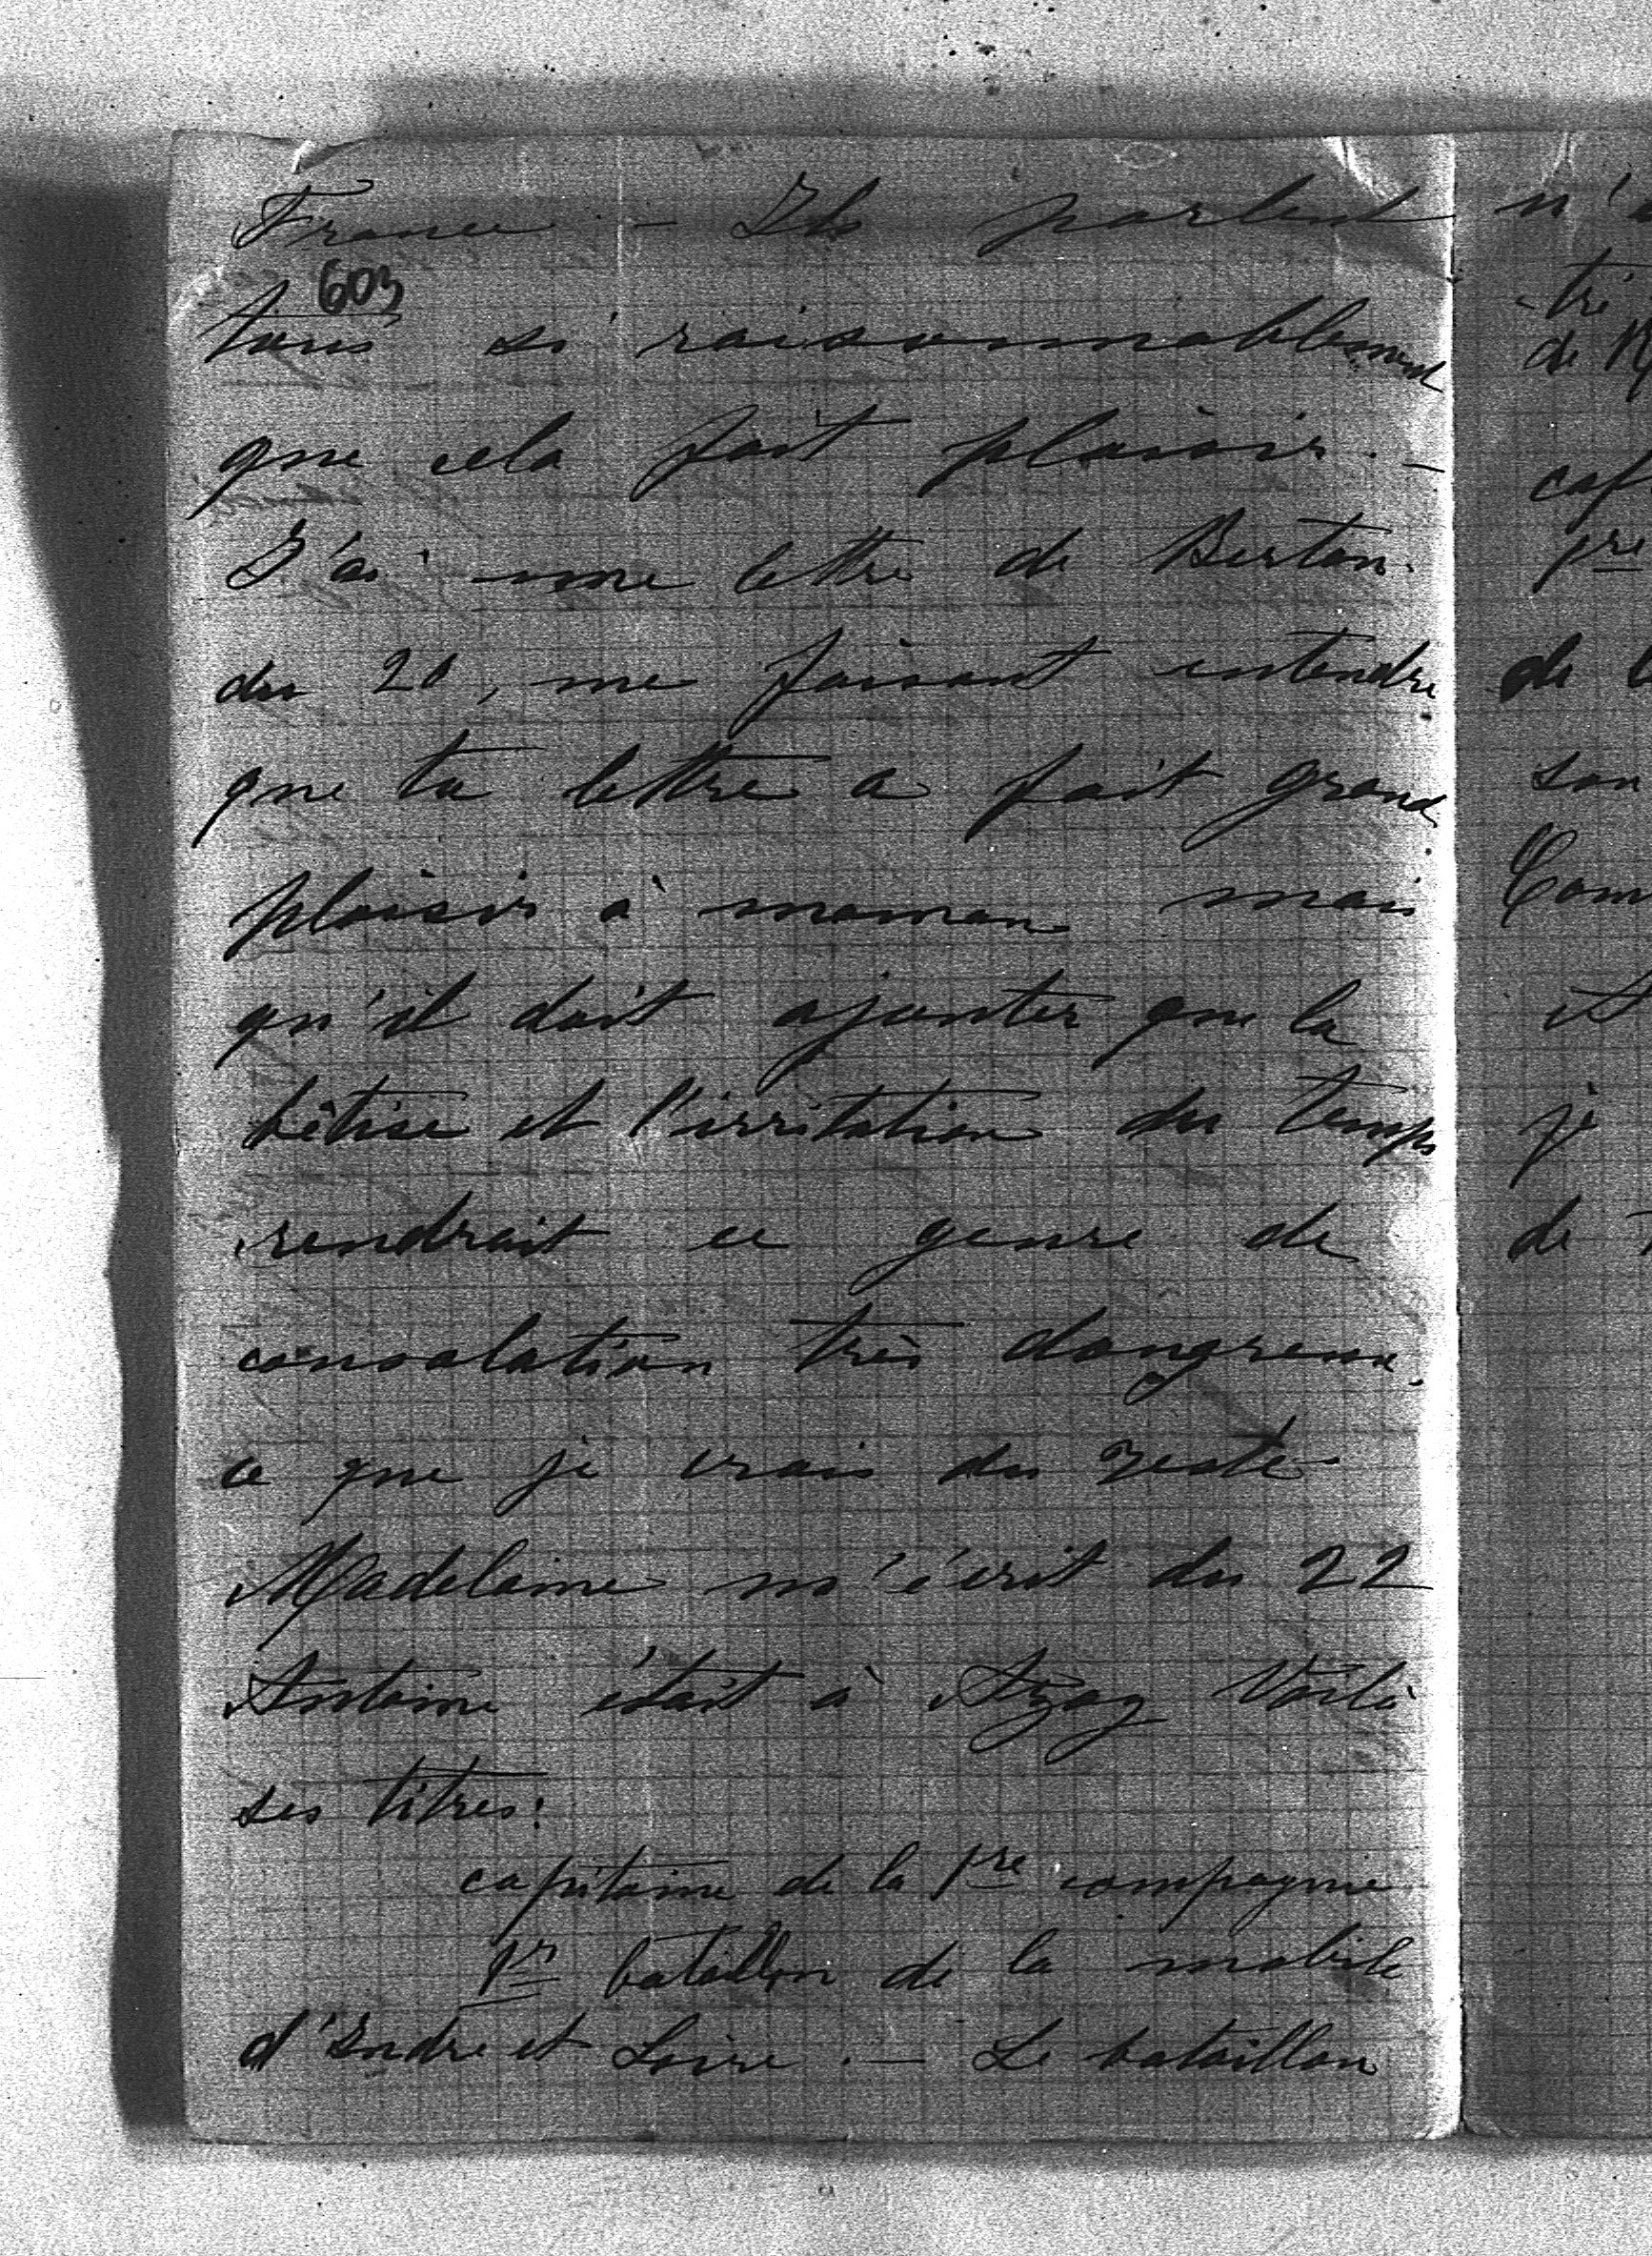 France - Ils parlent
603
tous si raisonnablement
que cela fait plaisir. -
J'ai une lettre de Berton
du 20, me faisant entendre
que ta lettre a fait grand
plaisir à maman mais
qu'il doit ajouter que la
bêtise et l'irritation du temps
rendrait ce genre de
consolation très dangreux,
ce que je crois du reste
Madelaine m'écrit du 22
Antoine était à Azay Voilà
ses titres:
capitaine de la 1re compagnie
1er bataillon de la mobile
d'Indre et Loire. - Le bataillon
n'a
tré
de
1re
de
son
Com
et
je
de